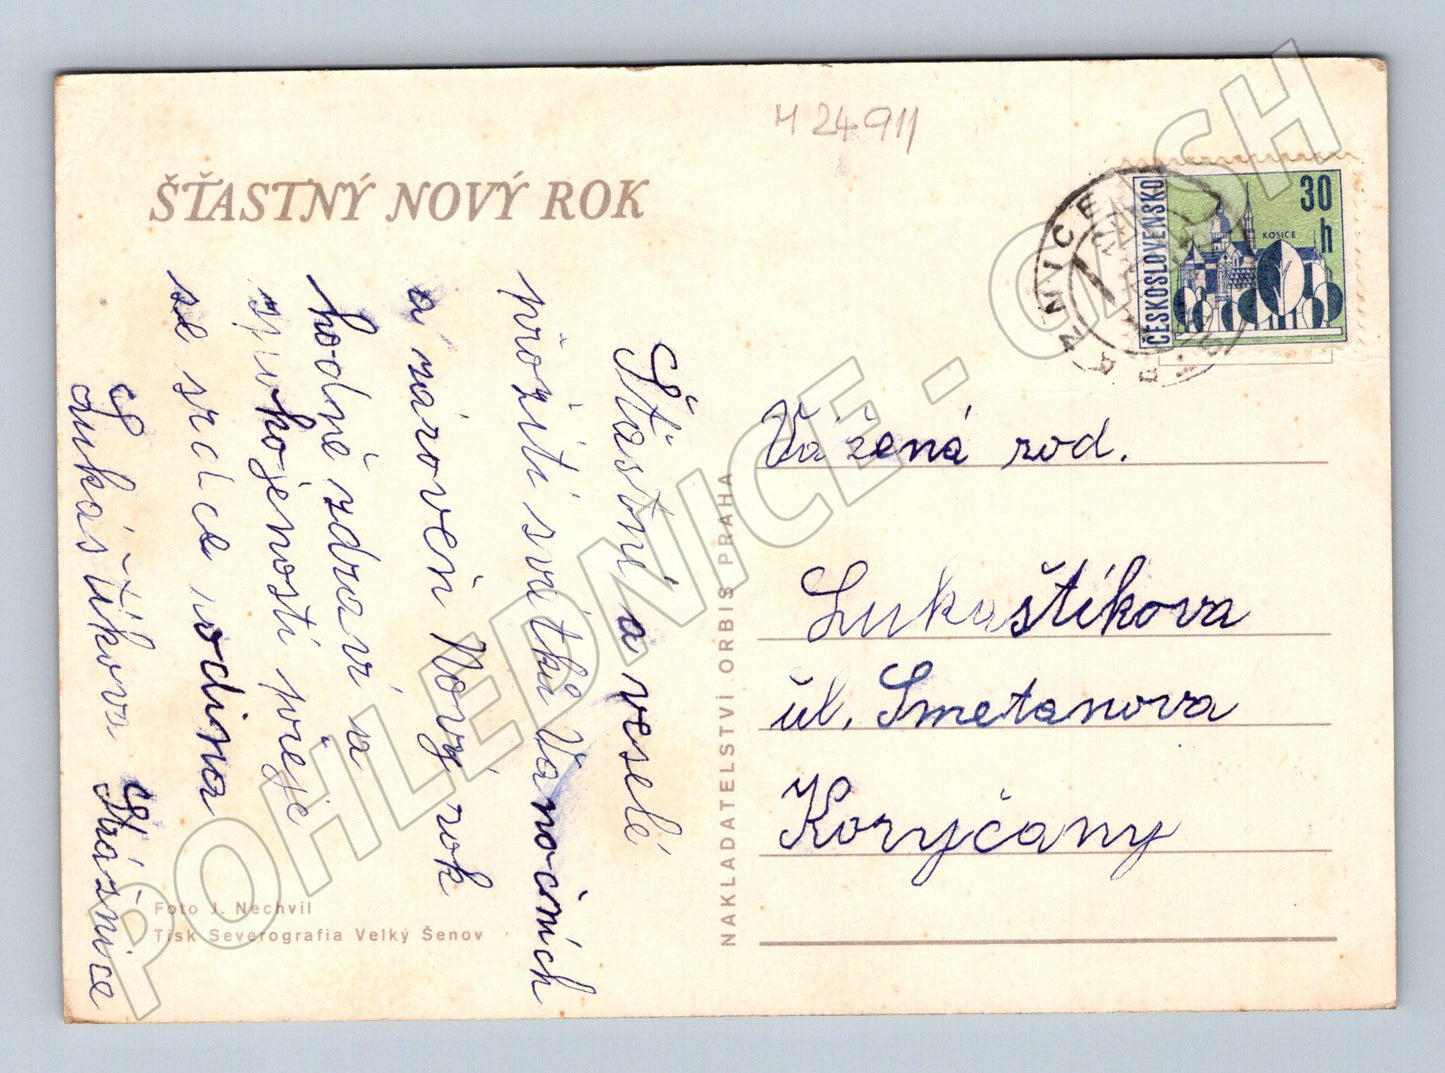 M 24911
ŠŤASTNÝ NOVÝ ROK
ČESKOSLOVENSKO
30 h
KOŠICE
Šťastní a veselé
prožití svátků Vanočních
a zároveň Nový rok
hodně zdraví a
spokojenosti přeje
se srdce rodina
Lukáštíkova Strážnice
Vážená rod.
Lukaštíkova
úl. Smetanova
Koryčany
NAKLADATELSTVÍ ORBIS PRAHA
Foto J. Nechvíl
Tisk Severografia Velký Šenov
POHLEDNICE - CASH